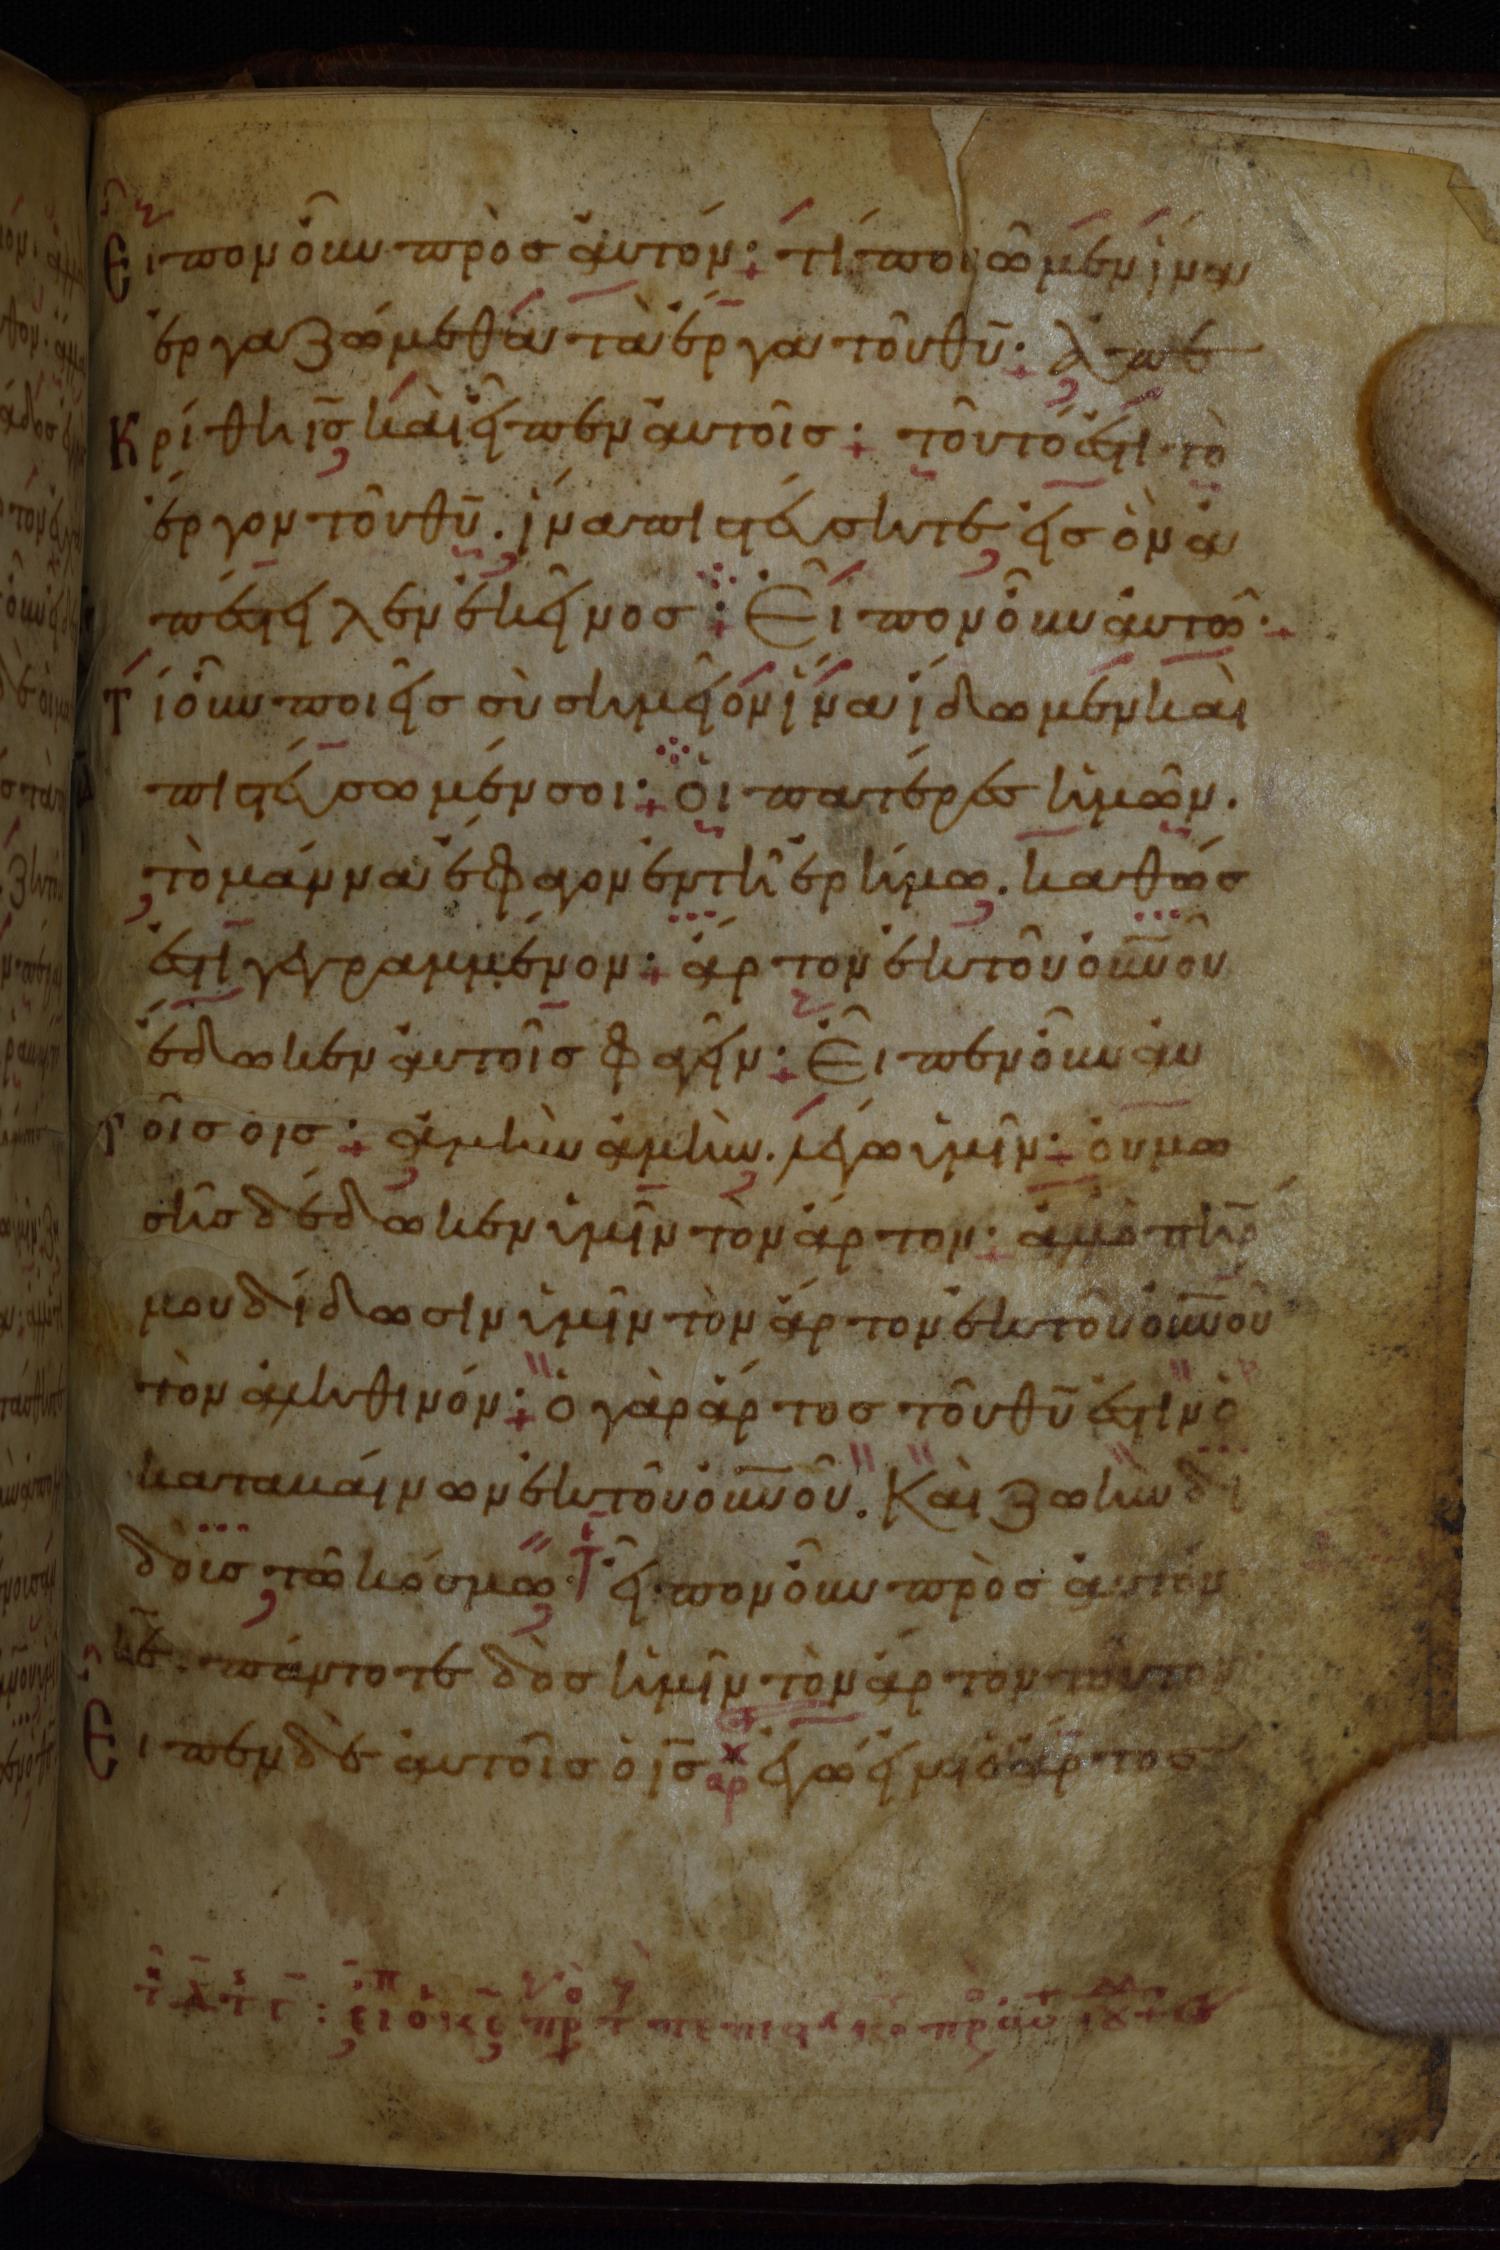 Ειπον οὖν πρὸς ἀυτόν· τί ποιῶμεν ἵνα
ἐργαζώμεθα τὰ ἔργα τοῦ θῦ· ἀπε
κρίθη ις̅ καὶ εἶπεν ἀυτοῖς· τοῦτό ἐστι τὸ
ἔργον τοῦ θῦ. ἵνα πιστέυσητε εἰς ὃν ἀ
πέστειλεν ἐκεῖνος· Εἶπον οὖν ἀυτῶ·
Τί οὖν ποιεῖς σὺ σημεῖον ἵνα ἴδωμεν καὶ
πιστέυσωμέν σοι· ὁι πατέρες ἡμῶν.
τὸ μάννα ἔφαγον ἐν τῆ ἐρήμω. καθώς
ἐστι γεγραμμένον· ἄρτον ἐκ τοῦ ὀυ̅νοῦ
ἔδωκεν ἀυτοῖς φαγεῖν· Εἶπεν οὖν ἀυ
τοῖς ὁ ις̅· ἀμὴν ἀμὴν. λέγω ὑμῖν· ὀυ μω
σῆς δέδωκεν ὑμῖν τὸν ἄρτον· ἀλλ ὁ πη̅ρ
μου δίδωσιν ὑμῖν τὸν ἄρτον ἐκ τοῦ ὀυ̅νοῦ
τὸν ἀληθινόν· ὁ γὰρ ἄρτος τοῦ θῦ ἐστιν ὁ
καταβάινων ἐκ τοῦ ὀυ̅νοῦ. Καὶ ζωὴν δι
δοὺς τῶ κόσμω· εἶπον οὖν πρὸς ἀυτόν
κε̅. πάντοτε δὸς ἡμῖν τὸν ἄρτον τοῦτον
Ειπεν δὲ ἀυτοῖς ὁ ις̅ ἐγώ εἰμι ὁ ἄρτος